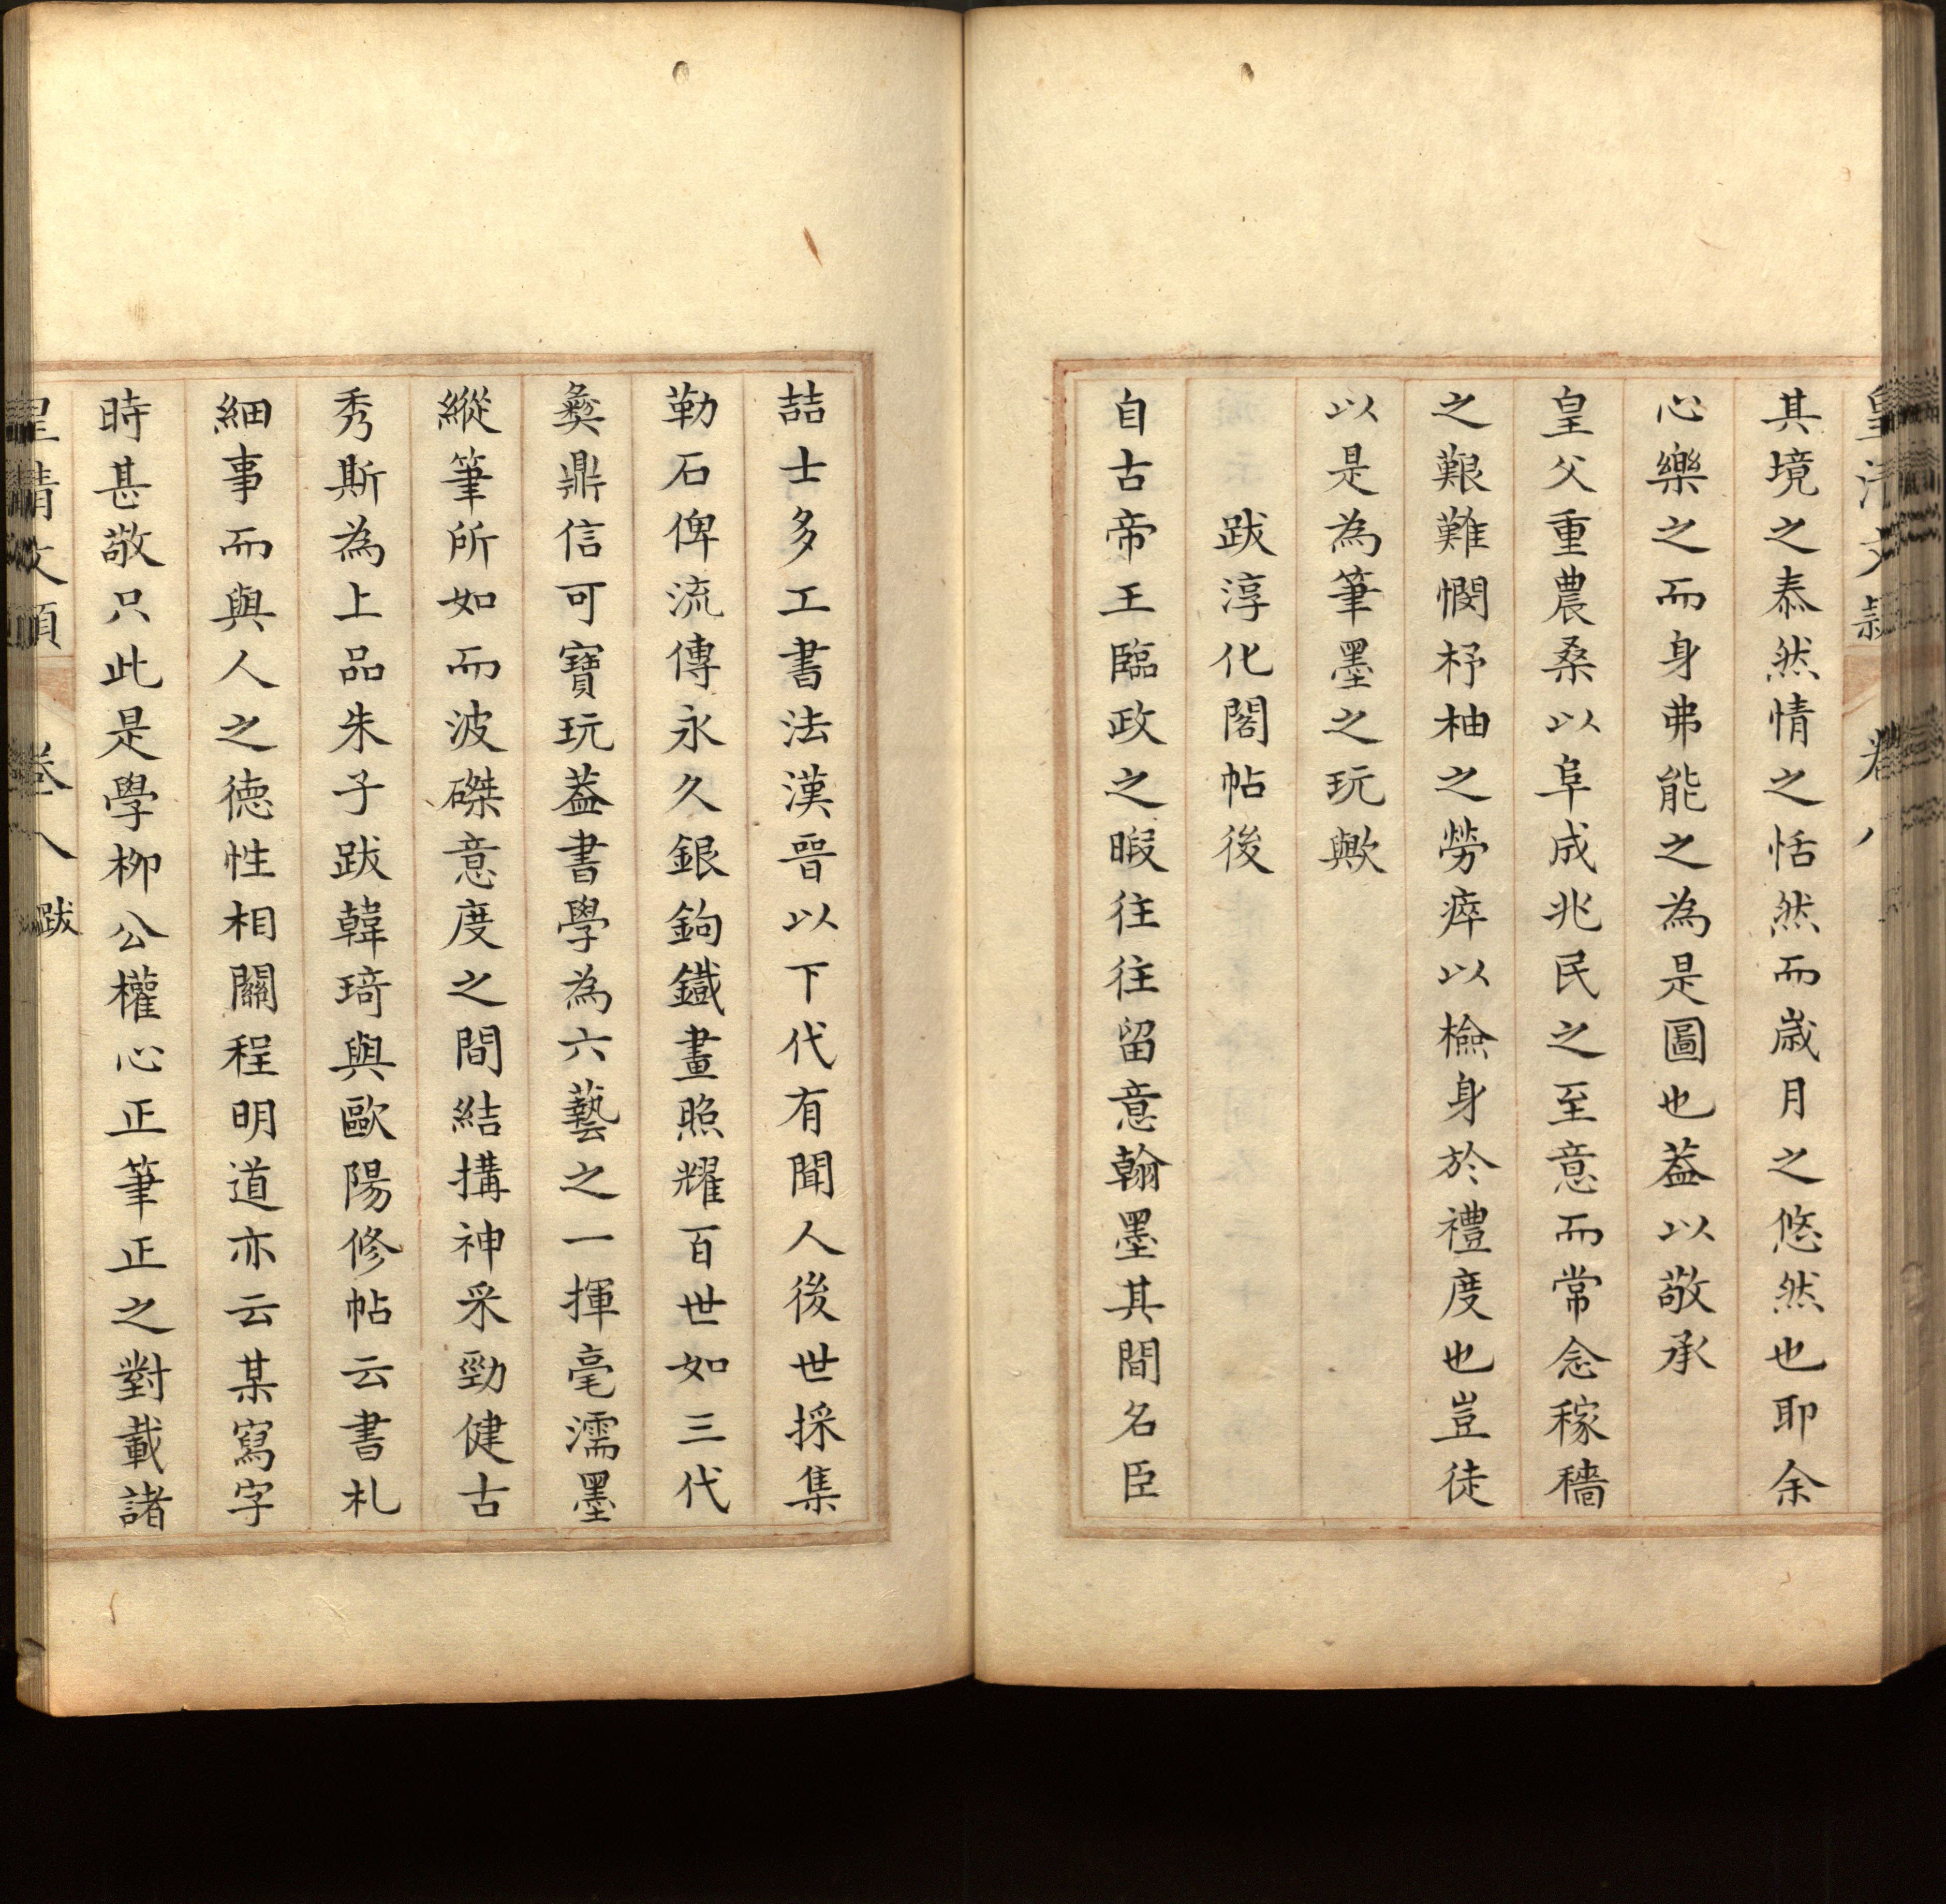 皇清文穎 卷八
其境之泰然情之恬然而歲月之悠然也耶余
心樂之而身弗能之為是圖也蓋以敬承
皇父重農桑以阜成兆民之至意而常念稼穡
之艱難憫杼柚之勞瘁以檢身於禮度也豈徒
以是為筆墨之玩歟
跋淳化閣帖後
自古帝王臨政之暇往往留意翰墨其間名臣
喆士多工書法漢晉以下代有聞人後世採集
勒石俾流傳永久銀鉤鐵畫照耀百世如三代
彜鼎信可寶玩蓋書學為六藝之一揮毫濡墨
縱筆所如而波磔意度之間結搆神采勁健古
秀斯為上品朱子跋韓琦與歐陽修帖云書札
細事而與人之德性相關程明道亦云某寫字
時甚敬只此是學柳公權心正筆正之對載諸
皇清文穎 卷八 跋